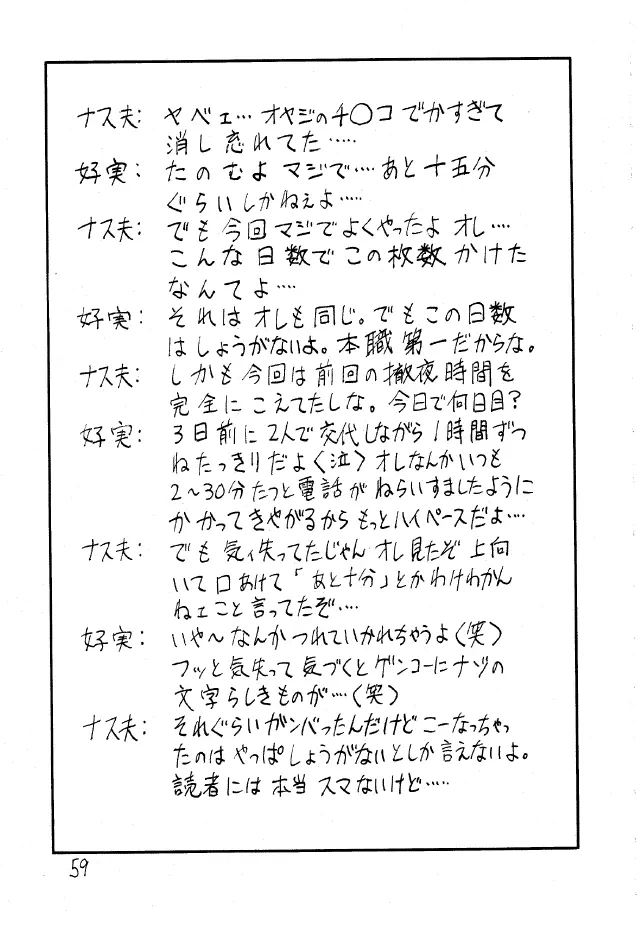 ナス夫： ヤベェ… オヤジのチ〇コ でかすぎて
消し忘れてた……
好実： たのむよ マジで…. あと十五分
ぐらいしかねぇよ……
ナス夫： でも 今回 マジで よくやったよ オレ….
こんな 日数で この枚数 かけた
なんてよ….
好実： それは オレも同じ。でもこの日数
はしょうがないよ。本職第一だからな。
ナス夫： しかも今回は前回の撤夜時間を
完全にこえてたしな。今日で何日目？
好実： 3日前に 2人で 交代しながら 1時間ずつ
ねたっきりだよ〈泣〉 オレなんかいつも
2〜30分たつと電話が ねらいすましたように
かかってきやがるから もっとハイペースだよ….
ナス夫： でも 気ィ失ってたじゃん オレ見たぞ 上向
いて 口あけて 「あと十分」とか わけわかん
ねェこと言ってたぞ….
好実： いや〜なんか つれていかれちゃうよ〈笑〉
フッと気失って 気づくとゲンコーにナゾの
文字らしきものが….〈笑〉
ナス夫： それぐらいガンバったんだけど こーなっちゃっ
たのは やっぱしょうがないとしか言えないよ。
読者には 本当 スマないけど……
59